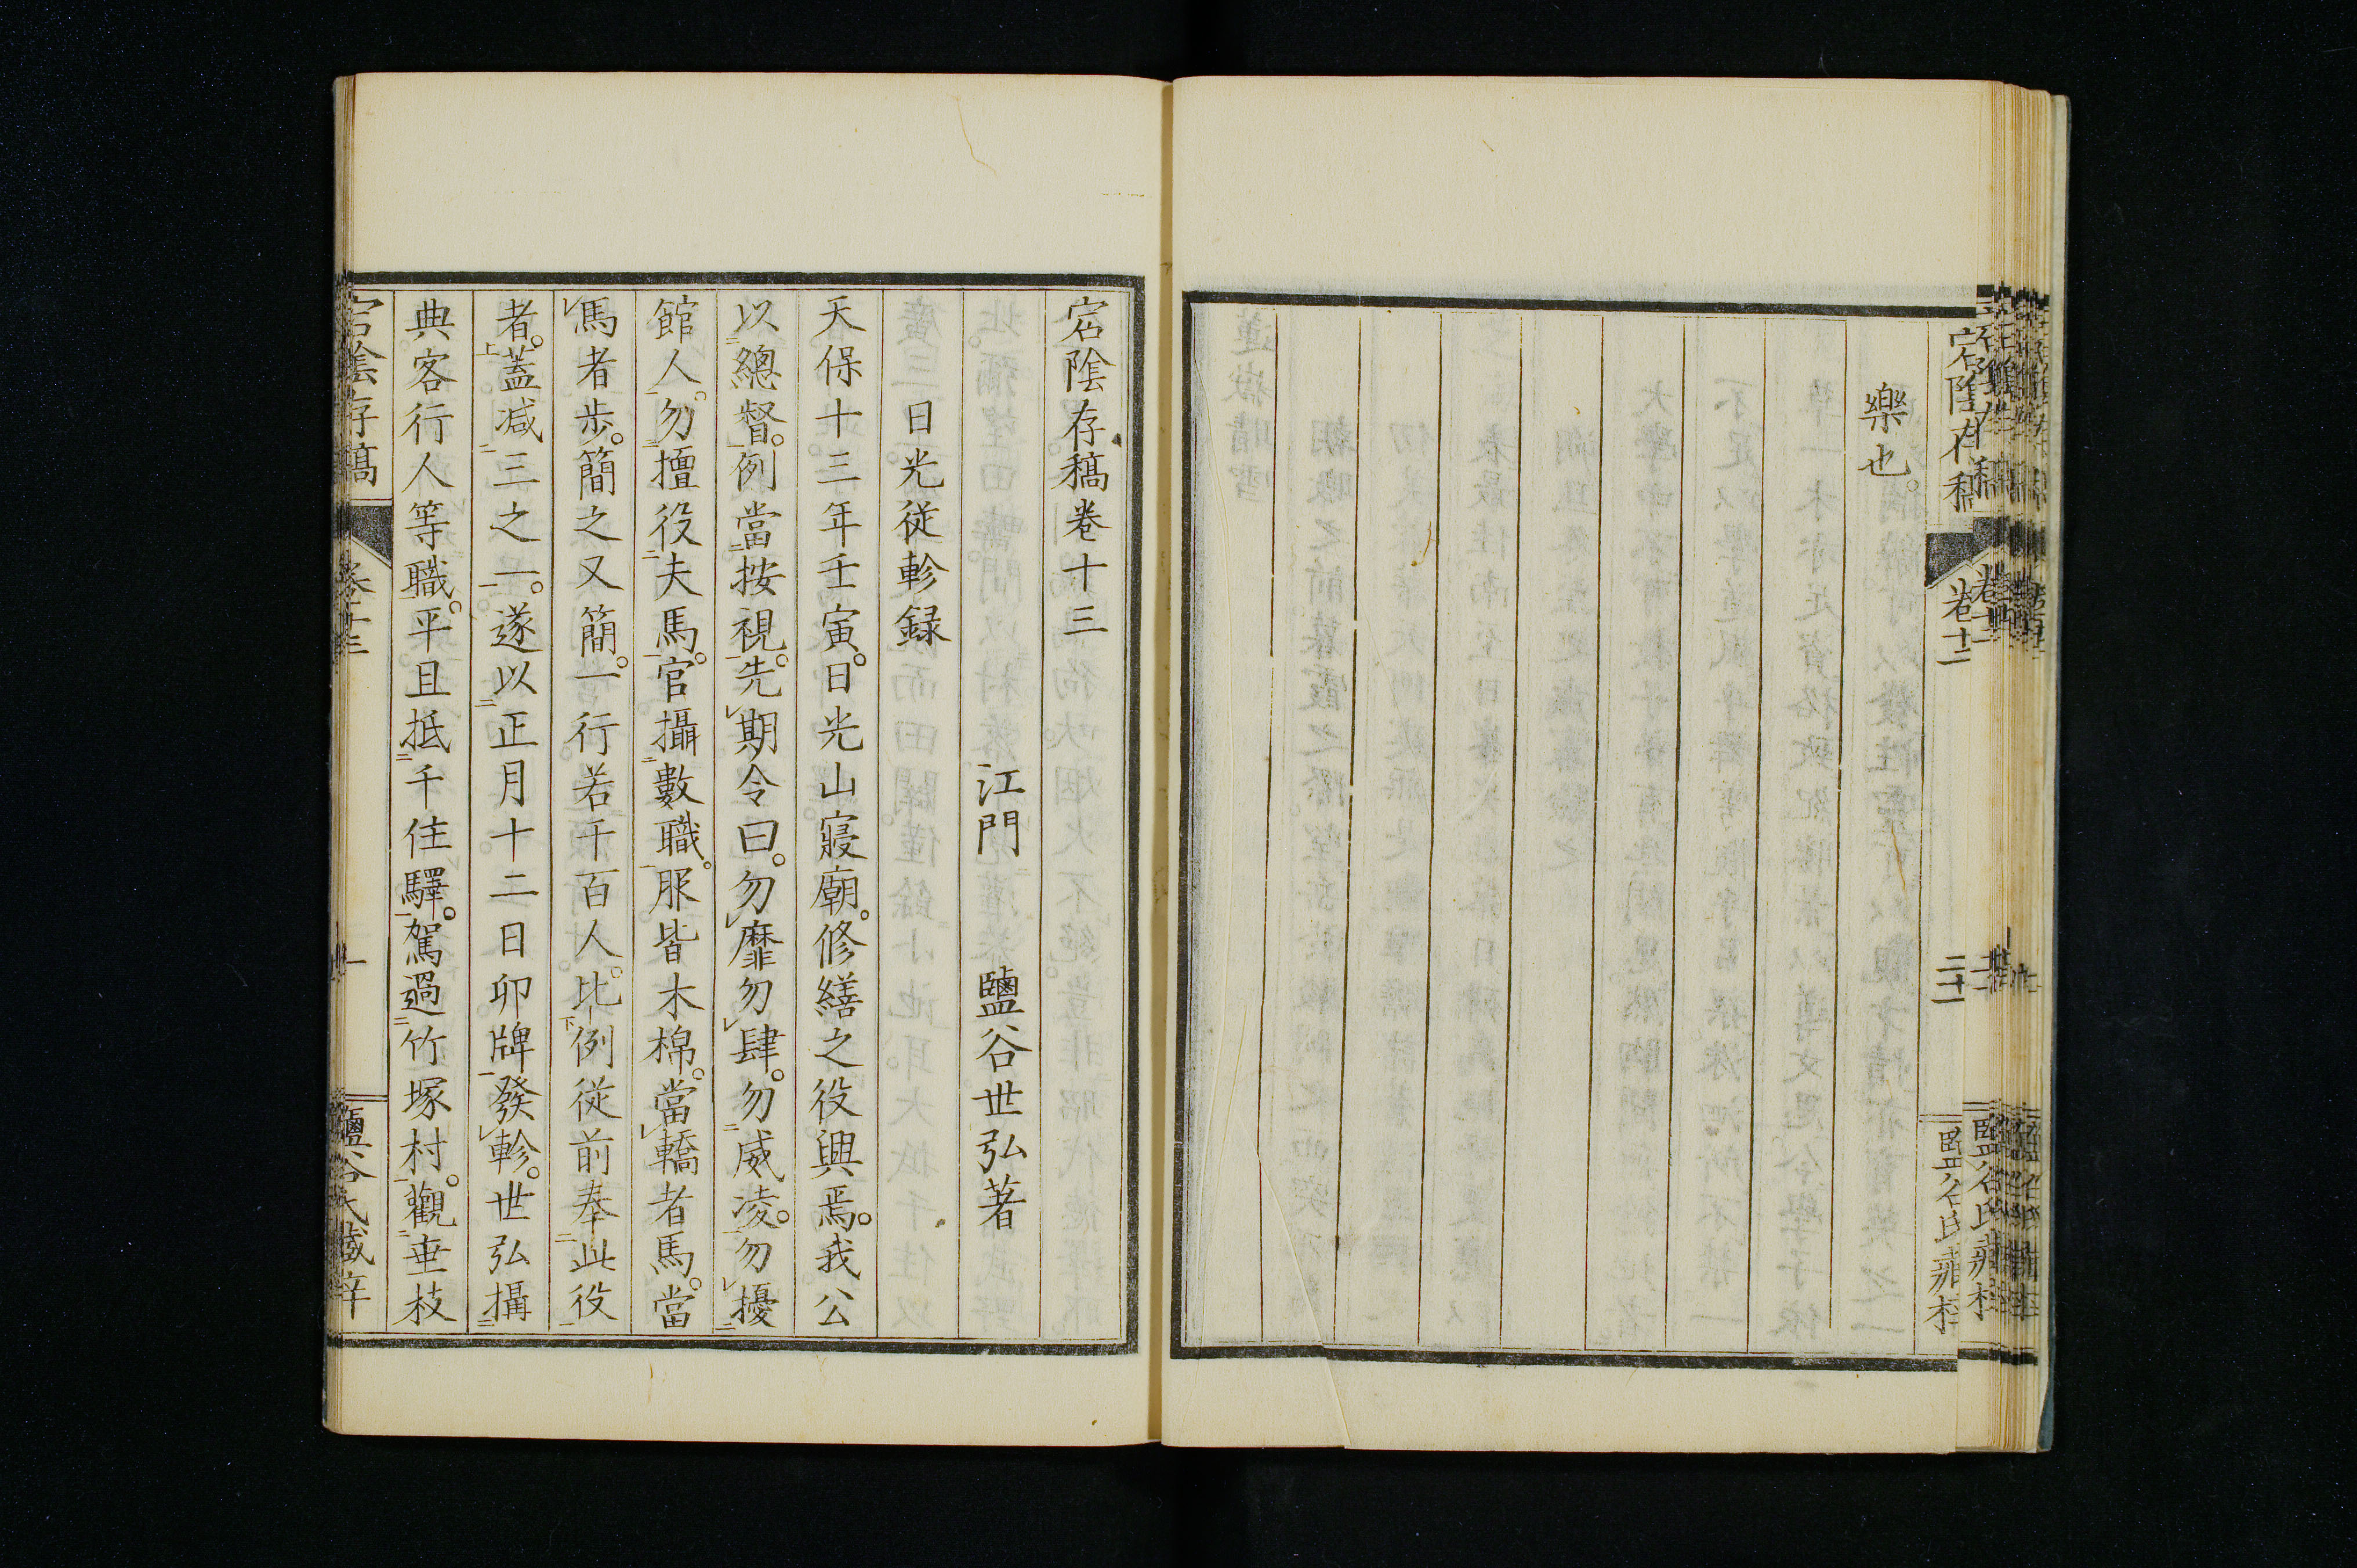 樂也。
宕陰存稿
卷十二
二十一
宕陰存稿卷十三
江門 鹽谷世弘著
日光從軫録
天保十三年壬寅。日光山寢廟。修繕之役興焉。我公
以總督。例當按視。先期令曰。勿靡勿肆。勿威凌。勿擾
館人。勿擅役夫馬。官攝數職。服皆木棉。當轎者馬。當
馬者步。簡之又簡。一行若干百人。比例從前奉此役
者。蓋減三之一。遂以正月十二日卯牌發軫。世弘攝
典客行人等職。平旦抵千住驛。駕過竹塚村。觀垂枝
宕陰存稿
卷十三
一
鹽谷氏藏